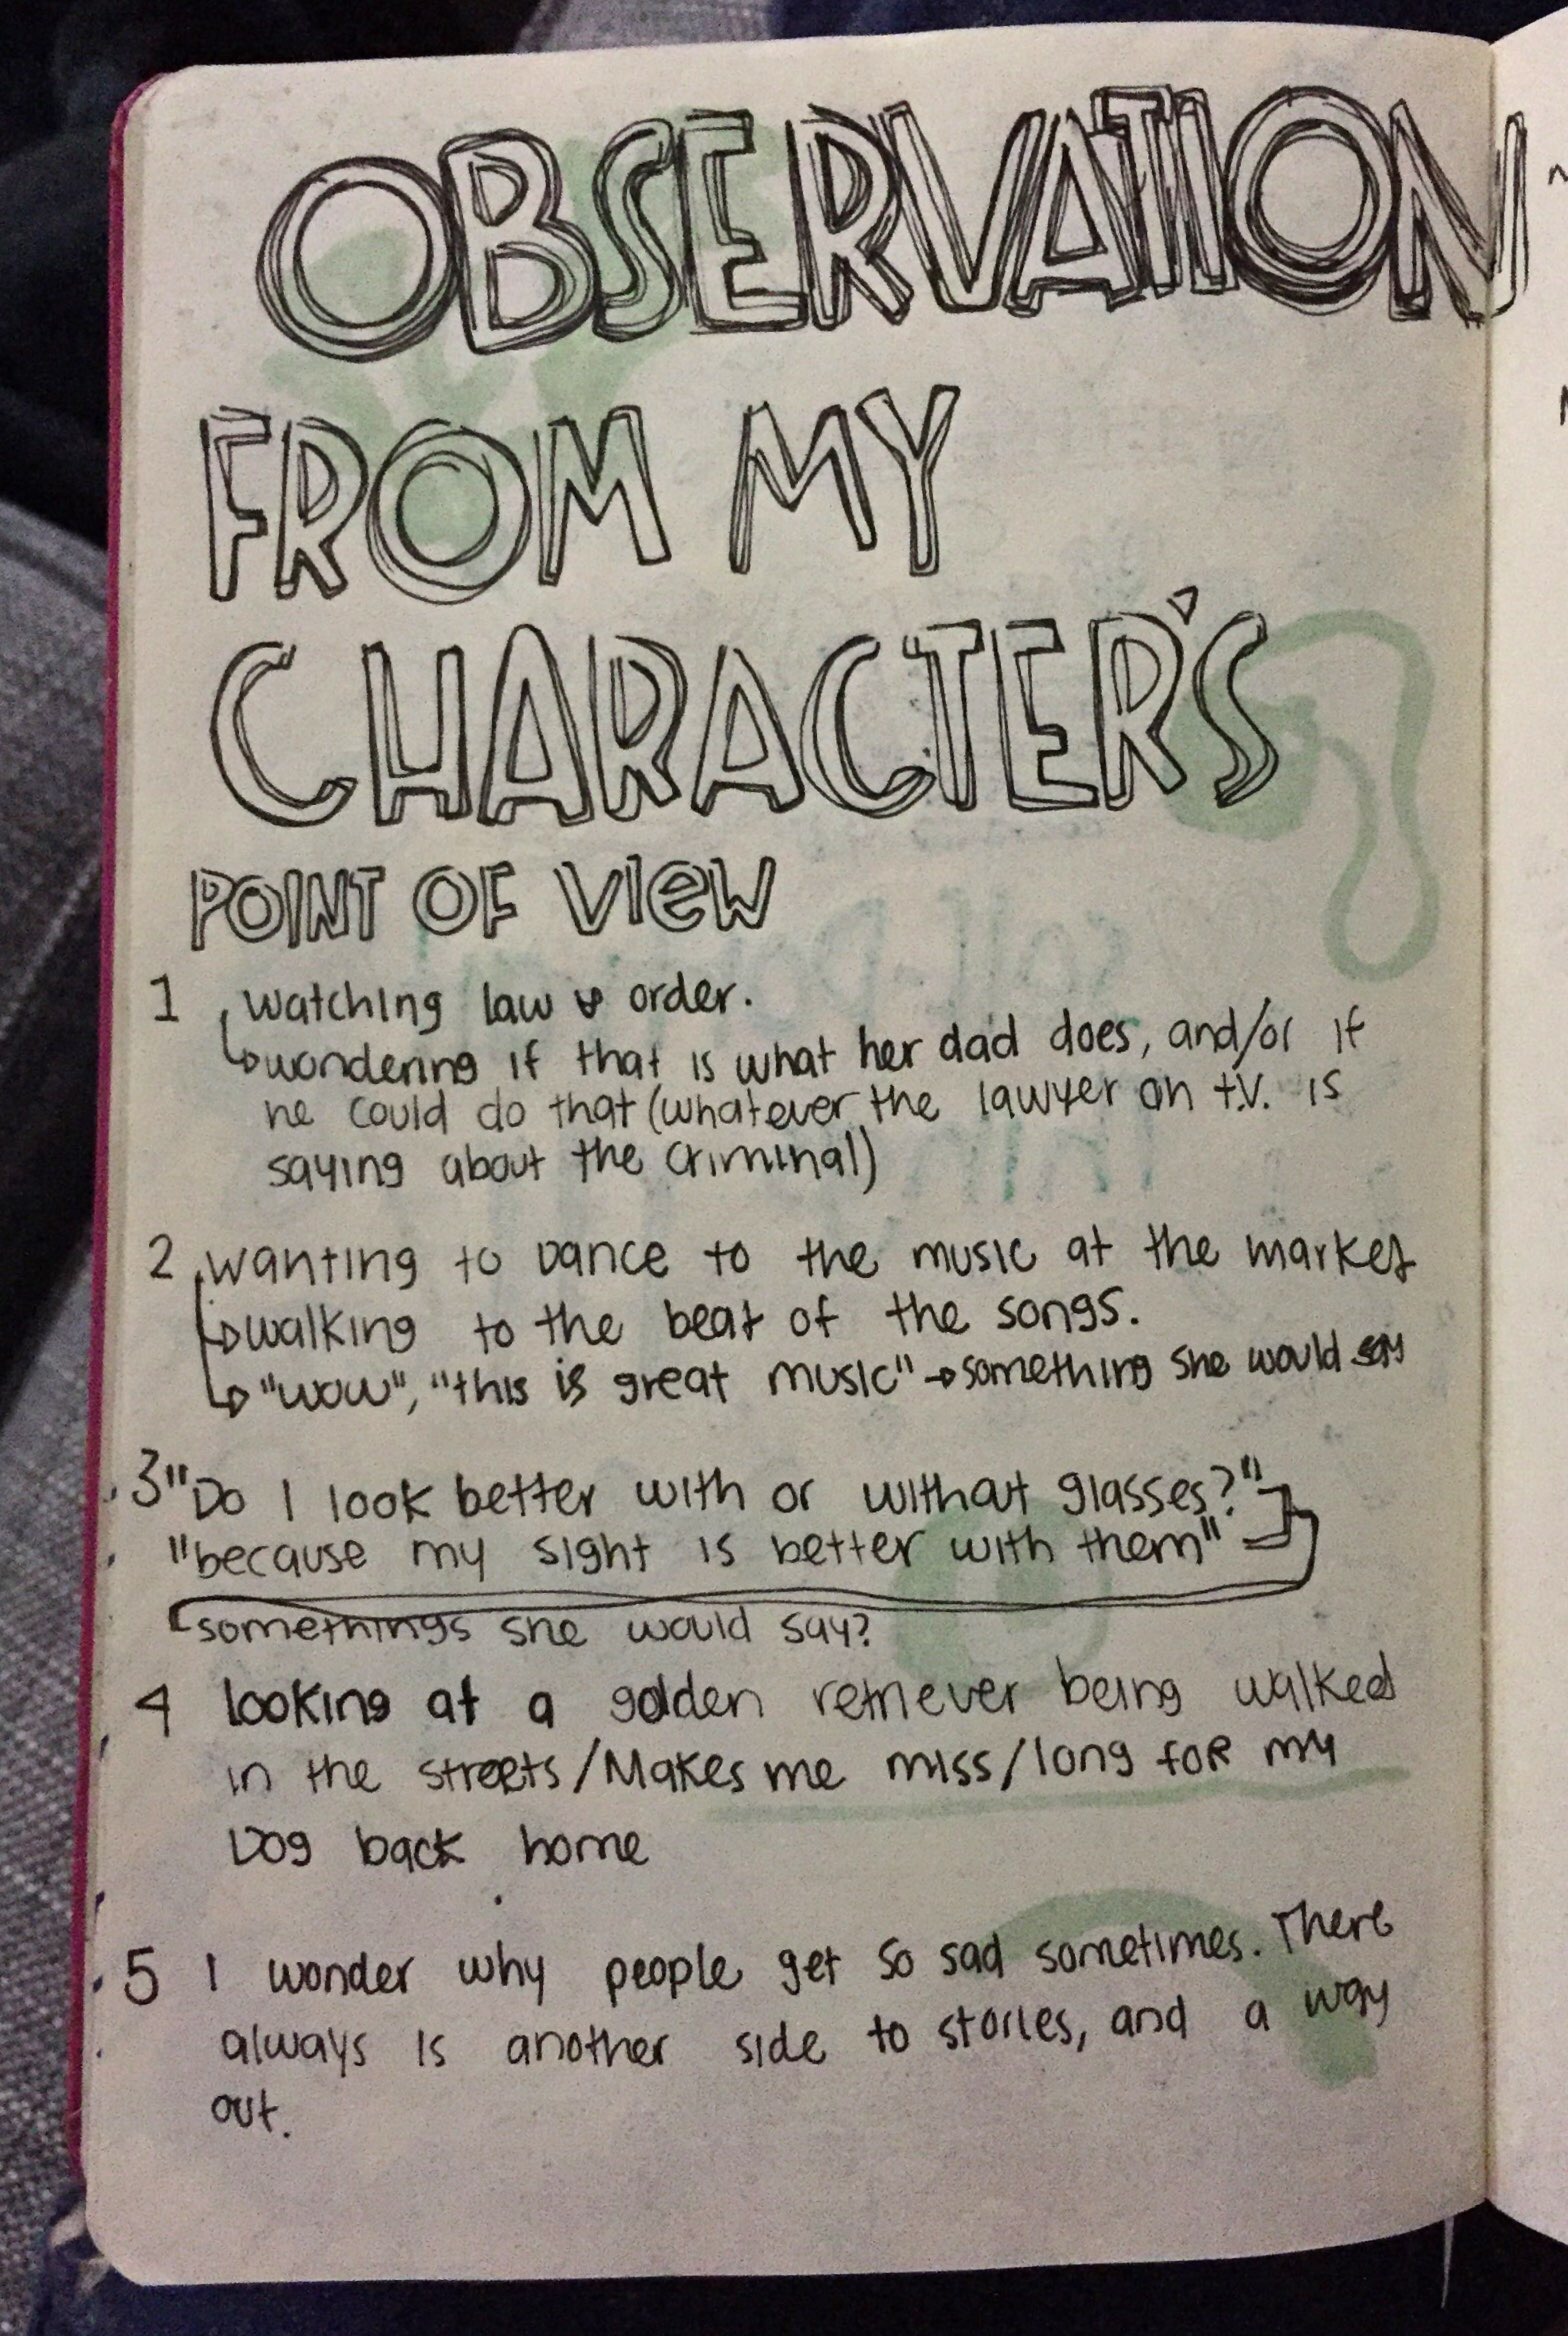 OBSERVATION
FROM MY
CHARACTER'S
POINT OF VIEW
1 watching law & order.
wondering if that is what her dad does, and/or if
he could do that (whatever the lawyer on t.v. is
saying about the criminal)
2 wanting to Dance to the music at the market
walking to the beat of the songs.
"wow", "this is great music" → something she would say
3 "Do I look better with or without glasses?"
"because my sight is better with them"
somethings she would say?
4 looking at a golden retriever being walked
in the streets/Makes me miss/long for my
Dog back home
5 I wonder why people get so sad sometimes. There
always is another side to stories, and a way
out.